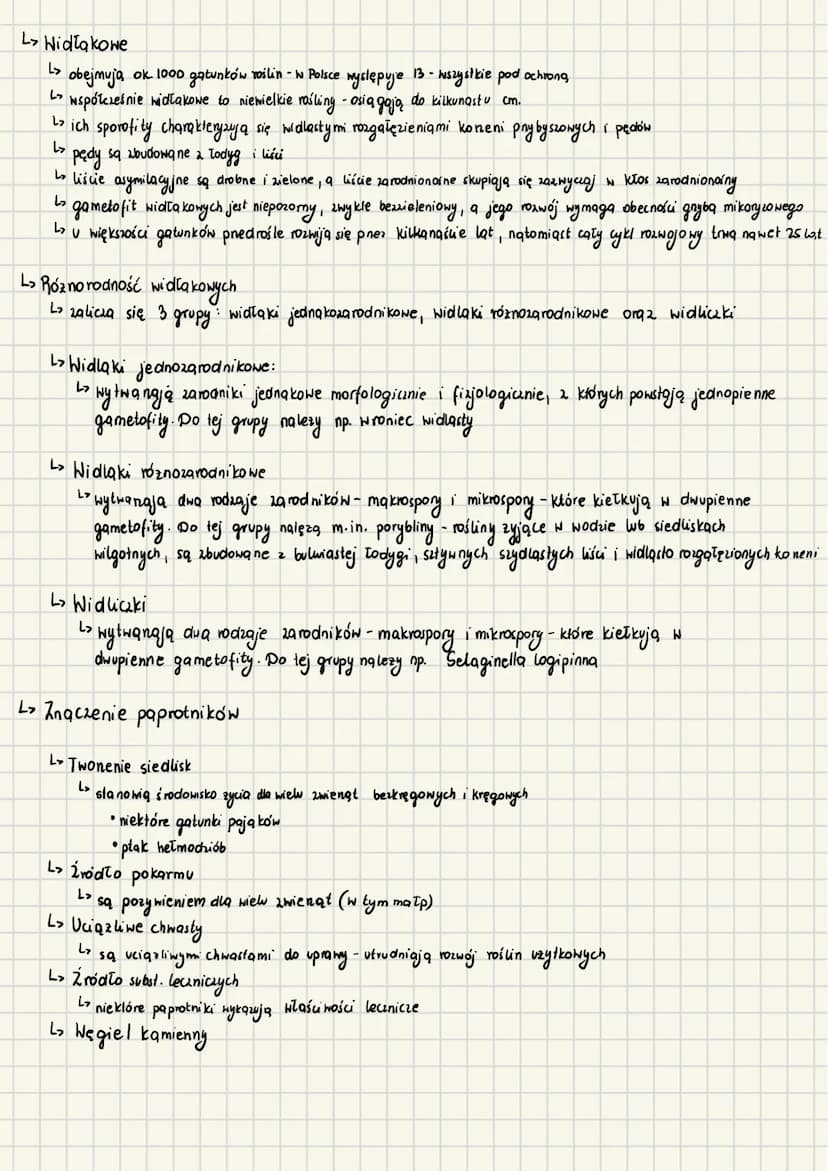 ↳ Widłakowe
↳ obejmują ok 1000 gatunków roślin - w Polsce występuje 13 - wszystkie pod ochroną
↳ współcześnie widłakowe to niewielkie rośliny - osiągają do kilkunastu cm.
↳ ich sporofity charakteryzują się widlastymi rozgałęzieniami korzeni przybyszowych i pędów
↳ pędy są zbudowane z łodyg i liści
↳ liście asymilacyjne są drobne i zielone, a liście zarodnionośne skupiają się zazwyczaj w kłos zarodnionośny
↳ gametofit widłakowych jest niepozorny, zwykle bezzieleniowy, a jego rozwój wymaga obecności grzyba mikoryzowego
↳ u większości gatunków przedrośle rozwija się przez kilkanaście lat, natomiast cały cykl rozwojowy trwa nawet 25 lat
↳ Różnorodność widłakowych
↳ zalicza się 3 grupy: widłaki jednakozarodnikowe, widłaki różnozarodnikowe oraz widliczki
↳ Widłaki jednozarodnikowe:
↳ wytwarzają zarodniki jednakowe morfologicznie i fizjologicznie, z których powstają jednopienne
gametofity. Do tej grupy należy np. wroniec widlasty
↳ Widłaki różnozarodnikowe
↳ wytwarzają dwa rodzaje zarodników - makrospory i mikrospory - które kiełkują w dwupienne
gametofity. Do tej grupy należą m.in. porybliny - rośliny żyjące w wodzie lub siedliskach
wilgotnych, są zbudowane z bulwiastej łodygi, sztywnych szydlastych liści i widlasto rozgałęzionych korzeni
↳ Widliczki
↳ wytwarzają dwa rodzaje zarodników - makrospory i mikrospory - które kiełkują w
dwupienne gametofity. Do tej grupy należy np. Selaginella logipinna
↳ Znaczenie paprotników
↳ Tworzenie siedlisk
↳ stanowią środowisko życia dla wielu zwierząt bezkręgowych i kręgowych
• niektóre gatunki pająków
• ptak hełmodziób
↳ Źródło pokarmu
↳ są pożywieniem dla wielu zwierząt (w tym małp)
↳ Uciążliwe chwasty
↳ są uciążliwymi chwastami do uprawy - utrudniają rozwój roślin użytkowych
↳ Źródło subst. leczniczych
↳ niektóre paprotniki wykazują właściwości lecznicze
↳ Węgiel kamienny